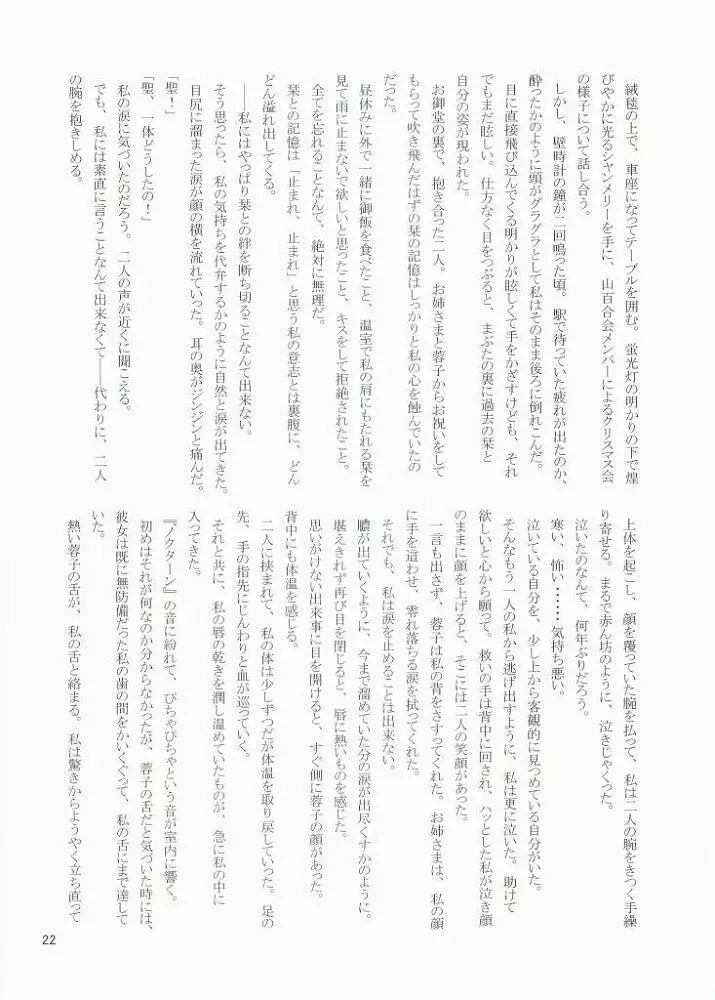 絨毯の上で、車座になってテーブルを囲む。蛍光灯の明かりの下で煌
びやかに光るシャンメリーを手に、山百合会メンバーによるクリスマス会
の様子について話し合う。
しかし、壁時計の鐘が二回鳴った頃。駅で待っていた疲れが出たのか、
酔ったかのように頭がグラグラとして私はそのまま後ろに倒れこんだ。
目に直接飛び込んでくる明かりが眩しくて手をかざすけども、それ
でもまだ眩しい。仕方なく目をつぶると、まぶたの裏に過去の栞と
自分の姿が現われた。
お御堂の裏で、抱き合った二人。お姉さまと蓉子からお祝いをして
もらって吹き飛んだはずの栞の記憶はしっかりと私の心を蝕んでいたの
だった。
昼休みに外で一緒に御飯を食べたこと、温室で私の肩にもたれる栞を
見て雨に止まないで欲しいと思ったこと、キスをして拒絶されたこと。
全てを忘れることなんて、絶対に無理だ。
栞との記憶は「止まれ、止まれ」と思う私の意志とは裏腹に、どん
どん溢れ出してくる。
――私にはやっぱり栞との絆を断ち切ることなんて出来ない。
そう思ったら、私の気持ちを代弁するかのように自然と涙が出てきた。
目尻に溜まった涙が顔の横を流れていった。耳の奥がジンジンと痛んだ。
「聖！」
「聖、一体どうしたの！」
私の涙に気づいたのだろう。二人の声が近くに聞こえる。
でも、私には素直に言うことなんて出来なくて――代わりに、二人
の腕を抱きしめる。
上体を起こし、顔を覆っていた腕を払って、私は二人の腕をきつく手繰
り寄せる。まるで赤ん坊のように、泣きじゃくった。
泣いたのなんて、何年ぶりだろう。
寒い、怖い……気持ち悪い。
泣いている自分を、少し上から客観的に見つめている自分がいた。
そんなもう一人の私から逃げ出すように、私は更に泣いた。助けて
欲しいと心から願って。救いの手は背中に回され、ハッとした私が泣き顔
のままに顔を上げると、そこには二人の笑顔があった。
一言も出さず、蓉子は私の背をさすってくれた。お姉さまは、私の顔
に手を這わせ、零れ落ちる涙を拭ってくれた。
それでも、私は涙を止めることは出来ない。
膿が出ていくように、今まで溜めていた分の涙が出尽くすかのように。
堪えきれず再び目を閉じると、唇に熱いものを感じた。
思いがけない出来事に目を開けると、すぐ側に蓉子の顔があった。
背中にも体温を感じる。
二人に挟まれて、私の体は少しずつだが体温を取り戻していった。足の
先、手の指先にじんわりと血が巡っていく。
それと共に、私の唇の乾きを潤し温めていたものが、急に私の中に
入ってきた。
『ノクターン』の音に紛れて、ぴちゃぴちゃという音が室内に響く。
初めはそれが何なのか分からなかったが、蓉子の舌だと気づいた時には、
彼女は既に無防備だった私の歯の間をかいくぐって、私の舌にまで達して
いた。
熱い蓉子の舌が、私の舌と絡まる。私は驚きからようやく立ち直って
22